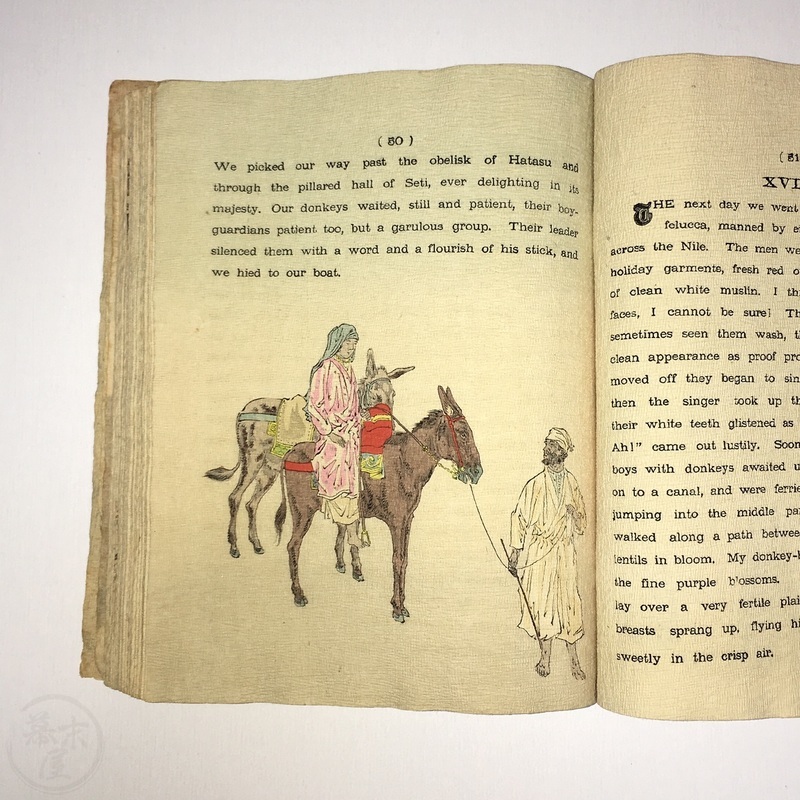 ( 50 )
We picked our way past the obelisk of Hatasu and
through the pillared hall of Seti, ever delighting in its
majesty. Our donkeys waited, still and patient, their boy-
guardians patient too, but a garulous group. Their leader
silenced them with a word and a flourish of his stick, and
we hied to our boat.
( 51
XVI
THE next day we went
felucca, manned by
across the Nile. The men
holiday garments, fresh red
of clean white muslin. I
faces, I cannot be sure!
semetimes seen them wash,
clean appearance as proof
moved off they began to
then the singer took up
their white teeth glistened as
Ah!" came out lustily. Soon
boys with donkeys awaited
on to a canal, and were
jumping into the middle
walked along a path
lentils in bloom. My
the fine purple b'ossoms.
lay over a very fertile
breasts sprang up, flying
sweetly in the crisp air.
幕末屋